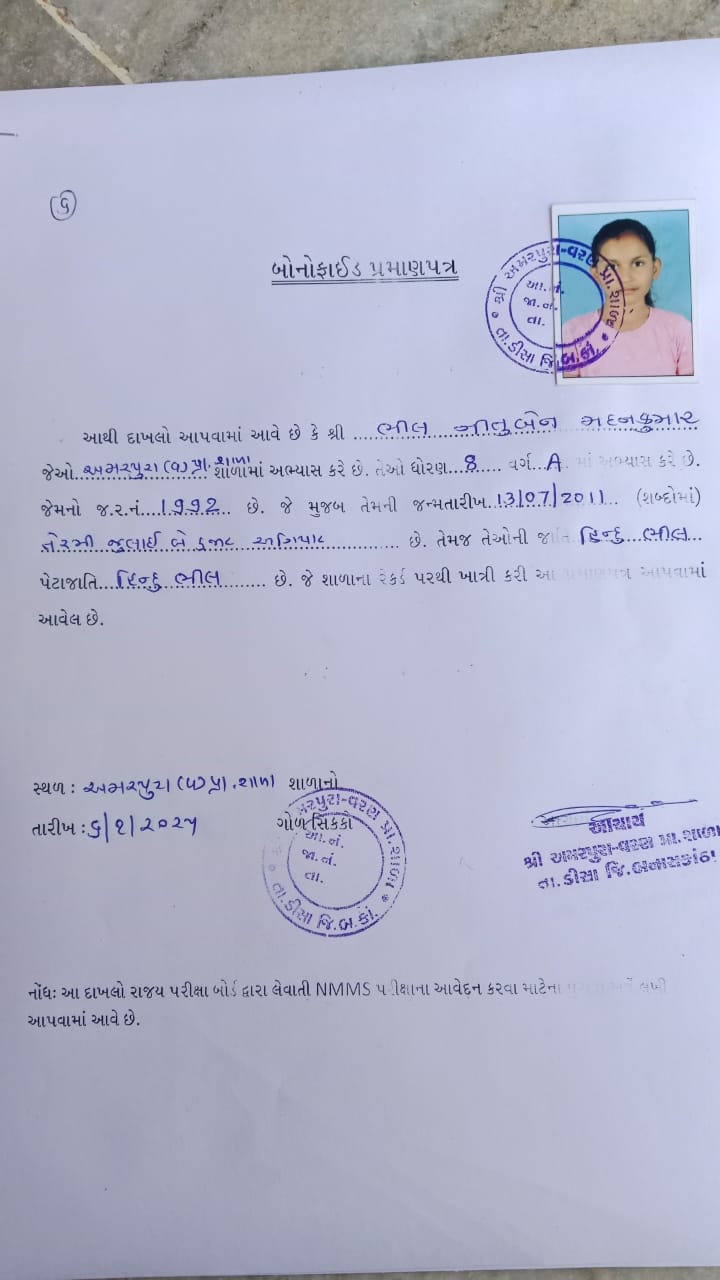 ૬
બોનોફાઈડ પ્રમાણપત્ર
શ્રી અમરપુરા-વરણ પ્રા.શાળા
આ.નં.
જા.નં.
તા.
તા.ડીસા જિ.બ.કાં.
આથી દાખલો આપવામાં આવે છે કે શ્રી ....ભીલ નીતુબેન મદનકુમાર
જેઓ ..અમરપુરા (વ) પ્રા. શાળા શાળામાં અભ્યાસ કરે છે. તેઓ ધોરણ...8..... વર્ગ..A. માં અભ્યાસ કરે છે.
જેમનો જ.ર.નં....1992... છે. જે મુજબ તેમની જન્મતારીખ..13/07/2011.. (શબ્દોમાં)
તેરમી જુલાઈ બે હજાર અગિયાર .............. છે. તેમજ તેઓની જાતિ હિન્દુ ભીલ...
પેટાજાતિ...હિન્દુ ભીલ........ છે. જે શાળાના રેકર્ડ પરથી ખાત્રી કરી આ પ્રમાણપત્ર આપવામાં
આવેલ છે.
સ્થળ : અમરપુરા (વ) પ્રા. શાળા શાળાનો
તારીખ : ૬/૧/૨૦૨૫ ગોળ સિક્કો
અમરપુરા-વરણ પ્રા.શાળા
આ.નં.
જા.નં.
તા.
તા.ડીસા જિ.બ.કાં.
આચાર્ય
શ્રી અમરપુરા-વરણ પ્રા.શાળા
તા.ડીસા જિ.બનાસકાંઠા
નોંધઃ આ દાખલો રાજ્ય પરીક્ષા બોર્ડ દ્વારા લેવાતી NMMS પરીક્ષાના આવેદન કરવા માટેના
આપવામાં આવે છે.